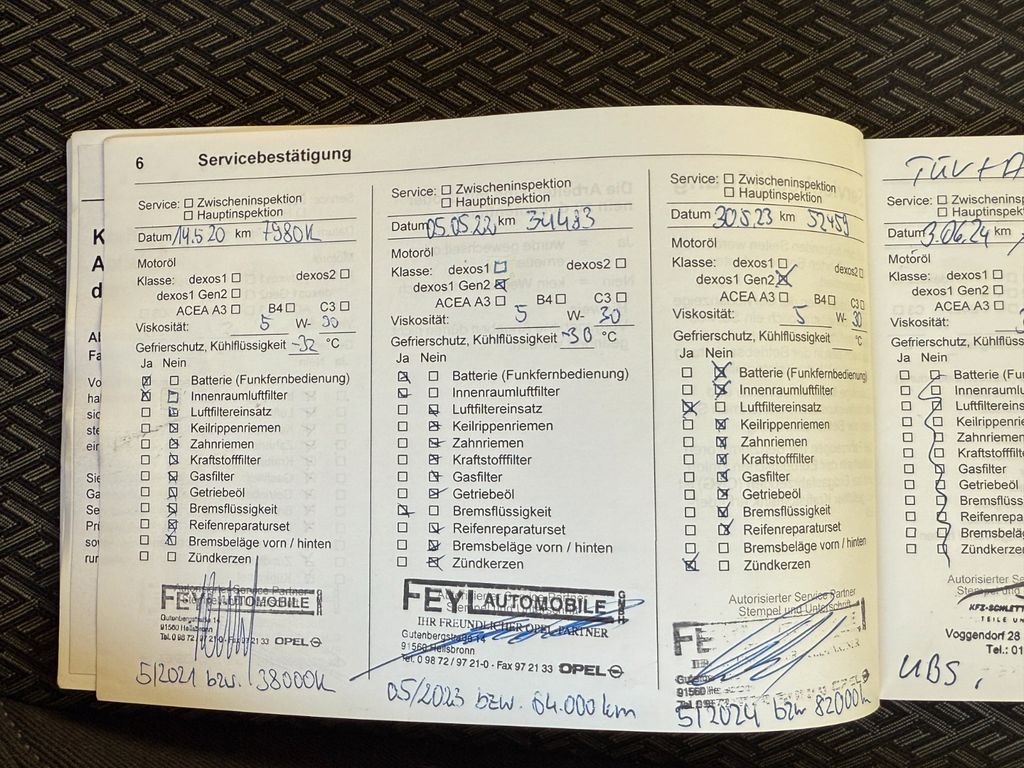 6 Servicebestätigung
Service: Zwischeninspektion
Hauptinspektion
Datum 14.5.20 km 7980k
Motoröl
Klasse: dexos1 dexos2
dexos1 Gen2
ACEA A3 B4 C3
Viskosität: 5 W- 30
Gefrierschutz, Kühlflüssigkeit -32 °C
Ja Nein
Batterie (Funkfernbedienung)
Innenraumluftfilter
Luftfiltereinsatz
Keilrippenriemen
Zahnriemen
Kraftstofffilter
Gasfilter
Getriebeöl
Bremsflüssigkeit
Reifenreparaturset
Bremsbeläge vorn / hinten
Zündkerzen
Autorisierter Service Partner
FEYL AUTOMOBILE
Gutenbergstraße 14
91560 Heilsbronn
Tel. 0 98 72 / 97 21-0 - Fax 97 21 33 OPEL
5/2021 bzw. 38000k
Service: Zwischeninspektion
Hauptinspektion
Datum 05.05.22 km 34483
Motoröl
Klasse: dexos1 dexos2
dexos1 Gen2
ACEA A3 B4 C3
Viskosität: 5 W- 30
Gefrierschutz, Kühlflüssigkeit -30 °C
Ja Nein
Batterie (Funkfernbedienung)
Innenraumluftfilter
Luftfiltereinsatz
Keilrippenriemen
Zahnriemen
Kraftstofffilter
Gasfilter
Getriebeöl
Bremsflüssigkeit
Reifenreparaturset
Bremsbeläge vorn / hinten
Zündkerzen
FEYL AUTOMOBILE GMBH
IHR FREUNDLICHER OPEL PARTNER
Gutenbergstraße 14
91560 Heilsbronn
Tel. 0 98 72 / 97 21-0 - Fax 97 21 33 OPEL
05/2023 bzw. 64.000 km
Service: Zwischeninspektion
Hauptinspektion
Datum 30.5.23 km 52459
Motoröl
Klasse: dexos1 dexos2
dexos1 Gen2
ACEA A3 B4 C3
Viskosität: 5 W- 30
Gefrierschutz, Kühlflüssigkeit °C
Ja Nein
Batterie (Funkfernbedienung)
Innenraumluftfilter
Luftfiltereinsatz
Keilrippenriemen
Zahnriemen
Kraftstofffilter
Gasfilter
Getriebeöl
Bremsflüssigkeit
Reifenreparaturset
Bremsbeläge vorn / hinten
Zündkerzen
Autorisierter Service Partner
Stempel und Unterschrift
FE
91560
5/2024 bzw 82000k
TÜV + A
Service: Zwischenins
Hauptinspek
Datum 3.06.24 km
Motoröl
Klasse: dexos1
dexos1 Gen2
ACEA A3
Viskosität:
Gefrierschutz, Kühlflüss
Ja Nein
Batterie (Fun
Innenraumlu
Luftfiltereins
Keilrippenrie
Zahnriemen
Kraftstofffilte
Gasfilter
Getriebeöl
Bremsflüssi
Reifenrepa
Bremsbeläg
Zündkerze
Autorisierter S
Stempel und
KFZ-SCHLETT
TEILE UN
Voggendorf 28
Tel.: 01
UBS,